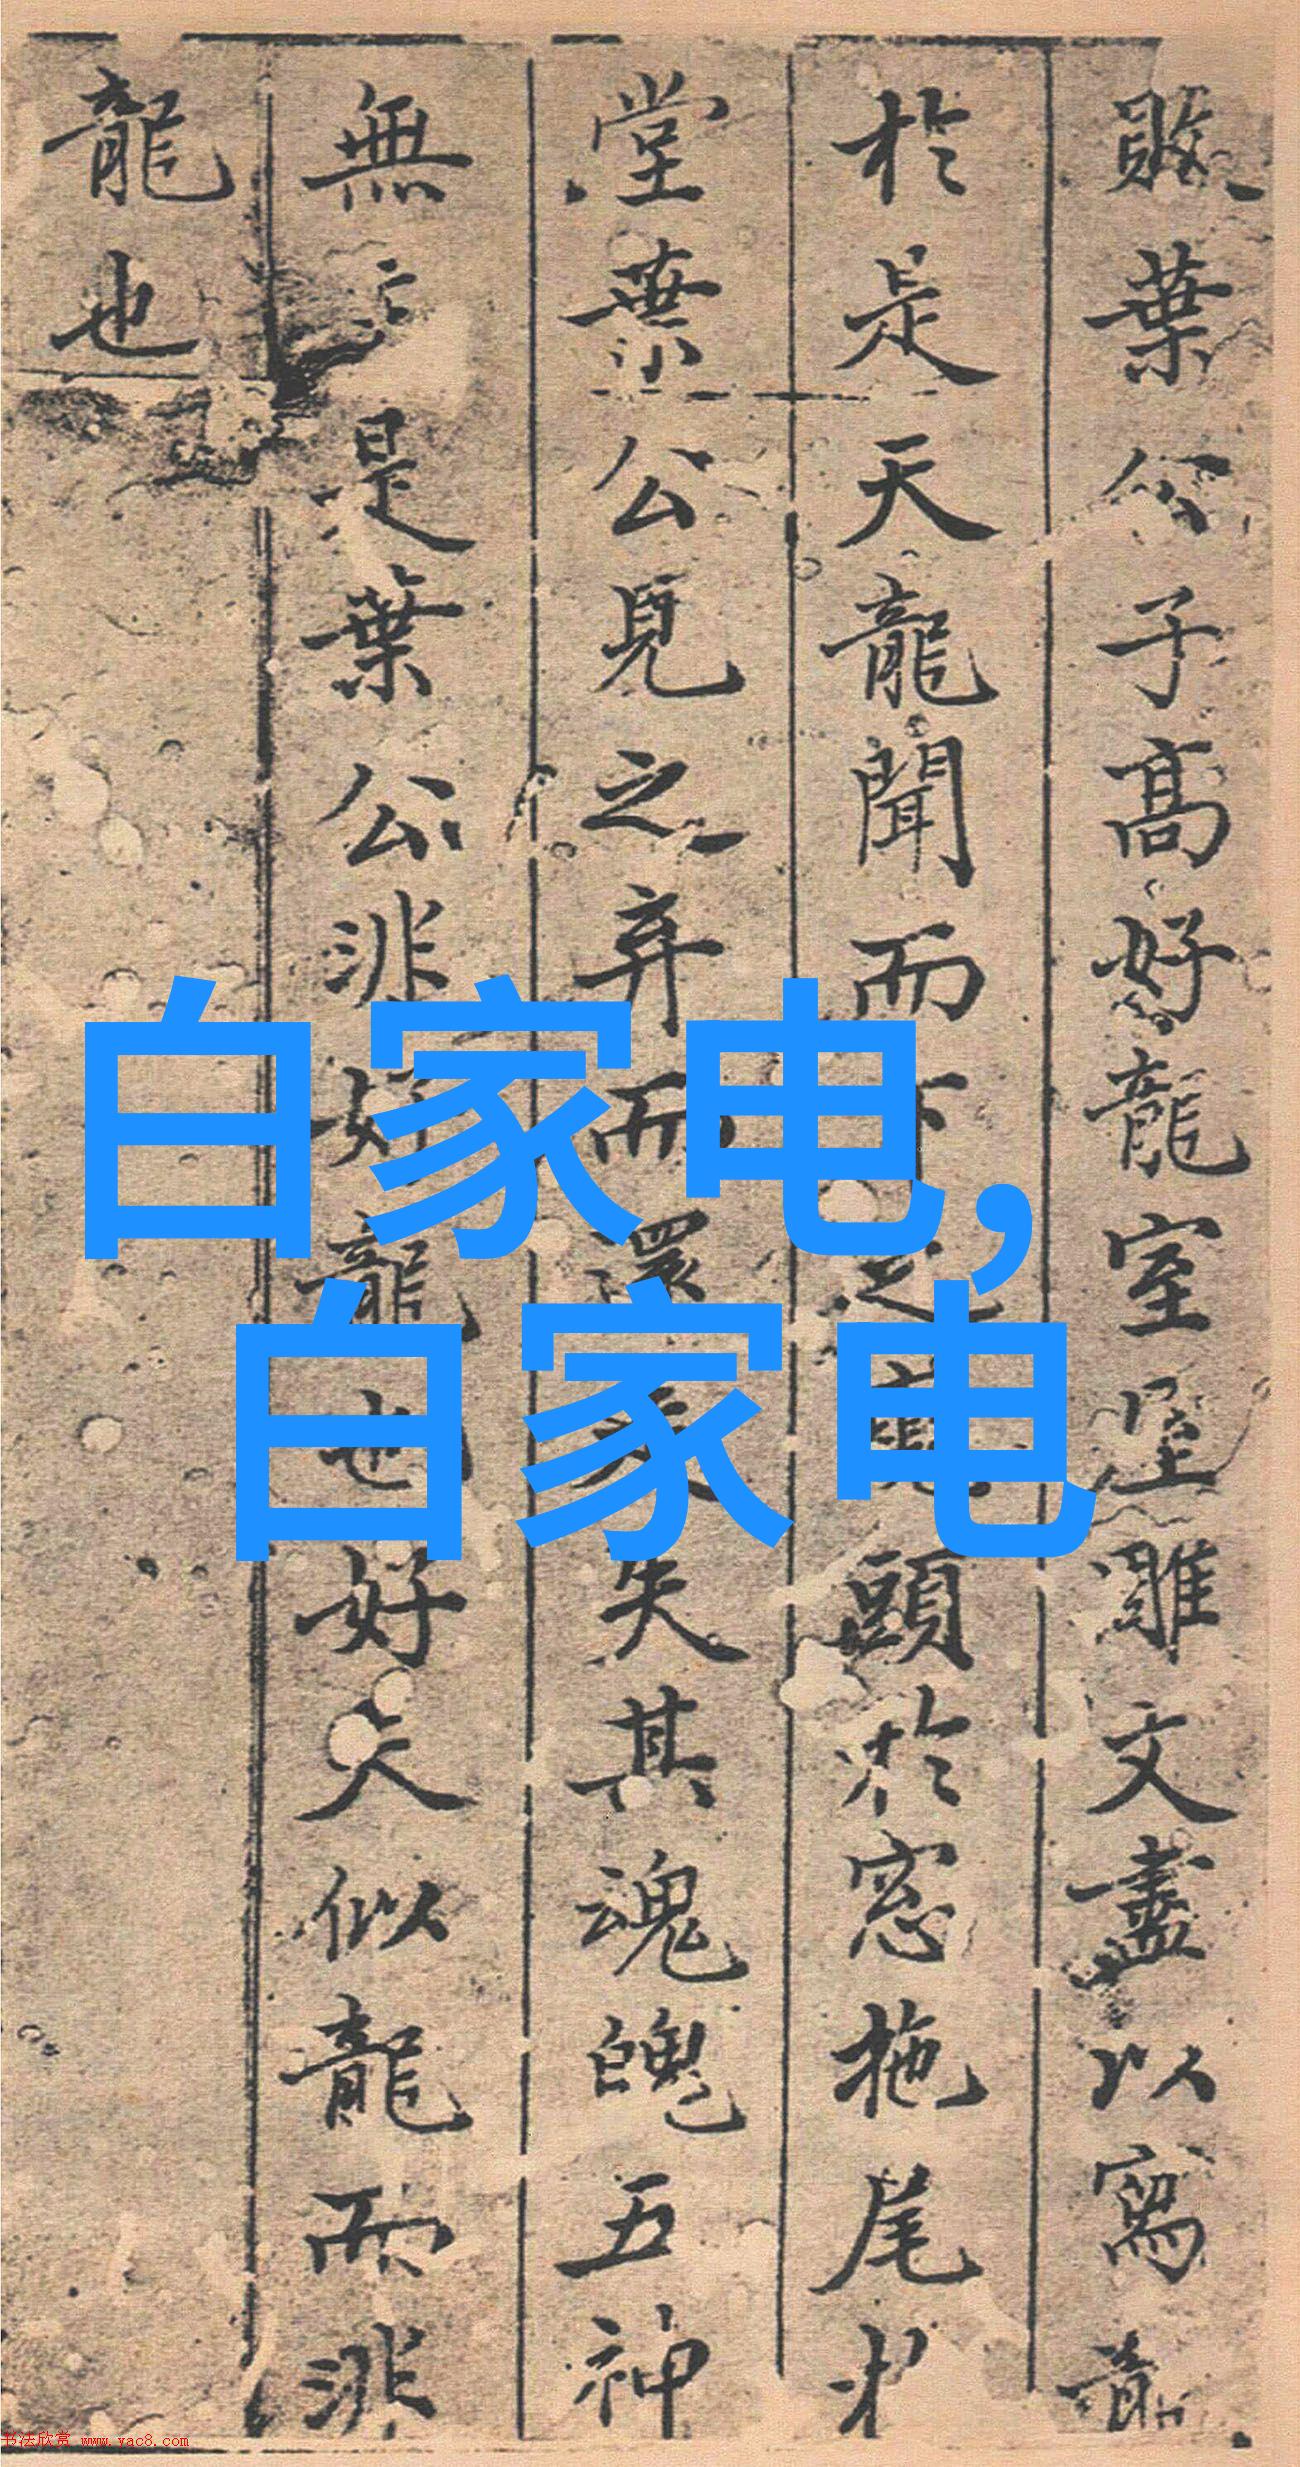 敗葉公子高好龍室屋雕文盡以寫龍
於是天龍聞而下之頭於窓拖尾於
堂葉公見之弃而還失其魂魄五神
無主是葉公非好龍也好夫似龍而非
龍也
白家电,
白家电
书法欣赏 www.yac8.com